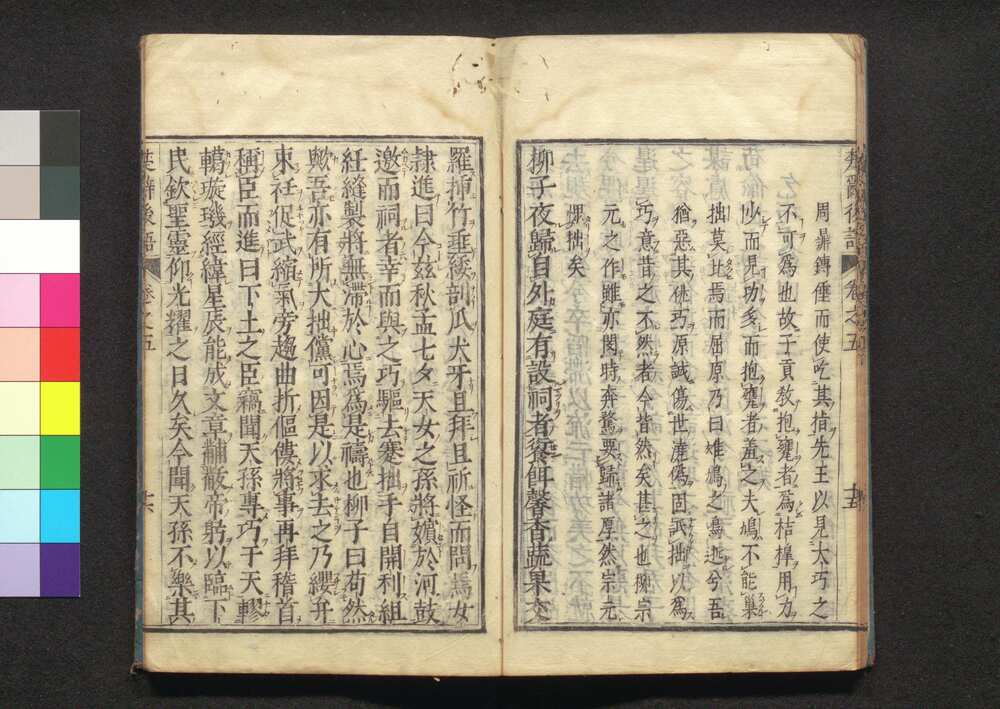 楚辭後語 卷之五 十五
周鼎鑄倕而使吃其指先王以見大巧之
不可為也故子貢教抱甕者為桔槹用力
少而見功多而抱甕者羞之夫鳩不能巢
拙莫比焉而屈原乃曰雄鳩之鳴逝兮吾
猶惡其佻巧原誠傷世澆偽固詆拙以為
巧意昔之不然者今皆然矣甚之也柳宗
元之作雖亦閔時奔騖要歸諸厚然宗元
愧拙矣
柳子夜歸自外庭有設祠者餐餌馨香蔬果交
羅挿竹垂綏剖瓜犬牙且拜且祈怪而問焉女
隷進曰今玆秋孟七夕天女之孫將嬪於河鼓
邀而祠者幸而與之巧驅去蹇拙手目開利組
紝縫製將無滯於心焉為是禱也柳子曰苟然
歟吾亦有所大拙儻可因是以求去之乃纓弁
束衽促武縮氣旁趨曲折傴僂將事再拜稽首
稱臣而進曰下土之臣竊聞天孫專巧于天轇
轕璇璣經緯星辰能成文章黼黻帝躬以臨下
民欽聖靈仰光耀之日久矣今聞天孫不樂其
楚辭後語 卷之五 十六